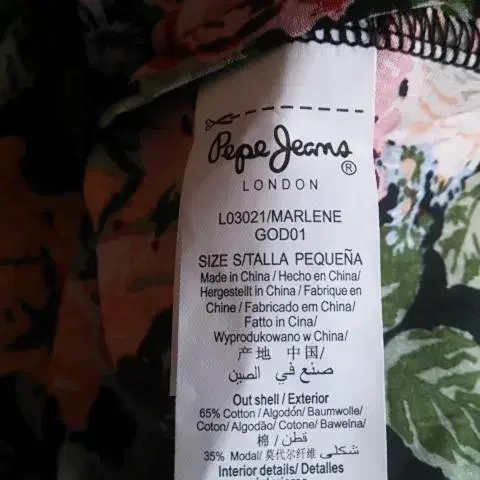 Pepe Jeans®
LONDON
L03021/MARLENE
GOD01
SIZE S/TALLA PEQUEÑA
Made in China / Hecho en China/
Hergestellt in China / Fabrique en
Chine / Fabricado em China/
Fatto in Cina/
Wyprodukowano w China/
产地 中国/
صنع في الصين
Out shell / Exterior
65% Cotton / Algodón/ Baumwolle/
Coton/ Algodão/ Cotone/ Bawelna/
棉 / قطن/
35% Modal/ 莫代尔纤维 شكلي
Interior details/ Detalles